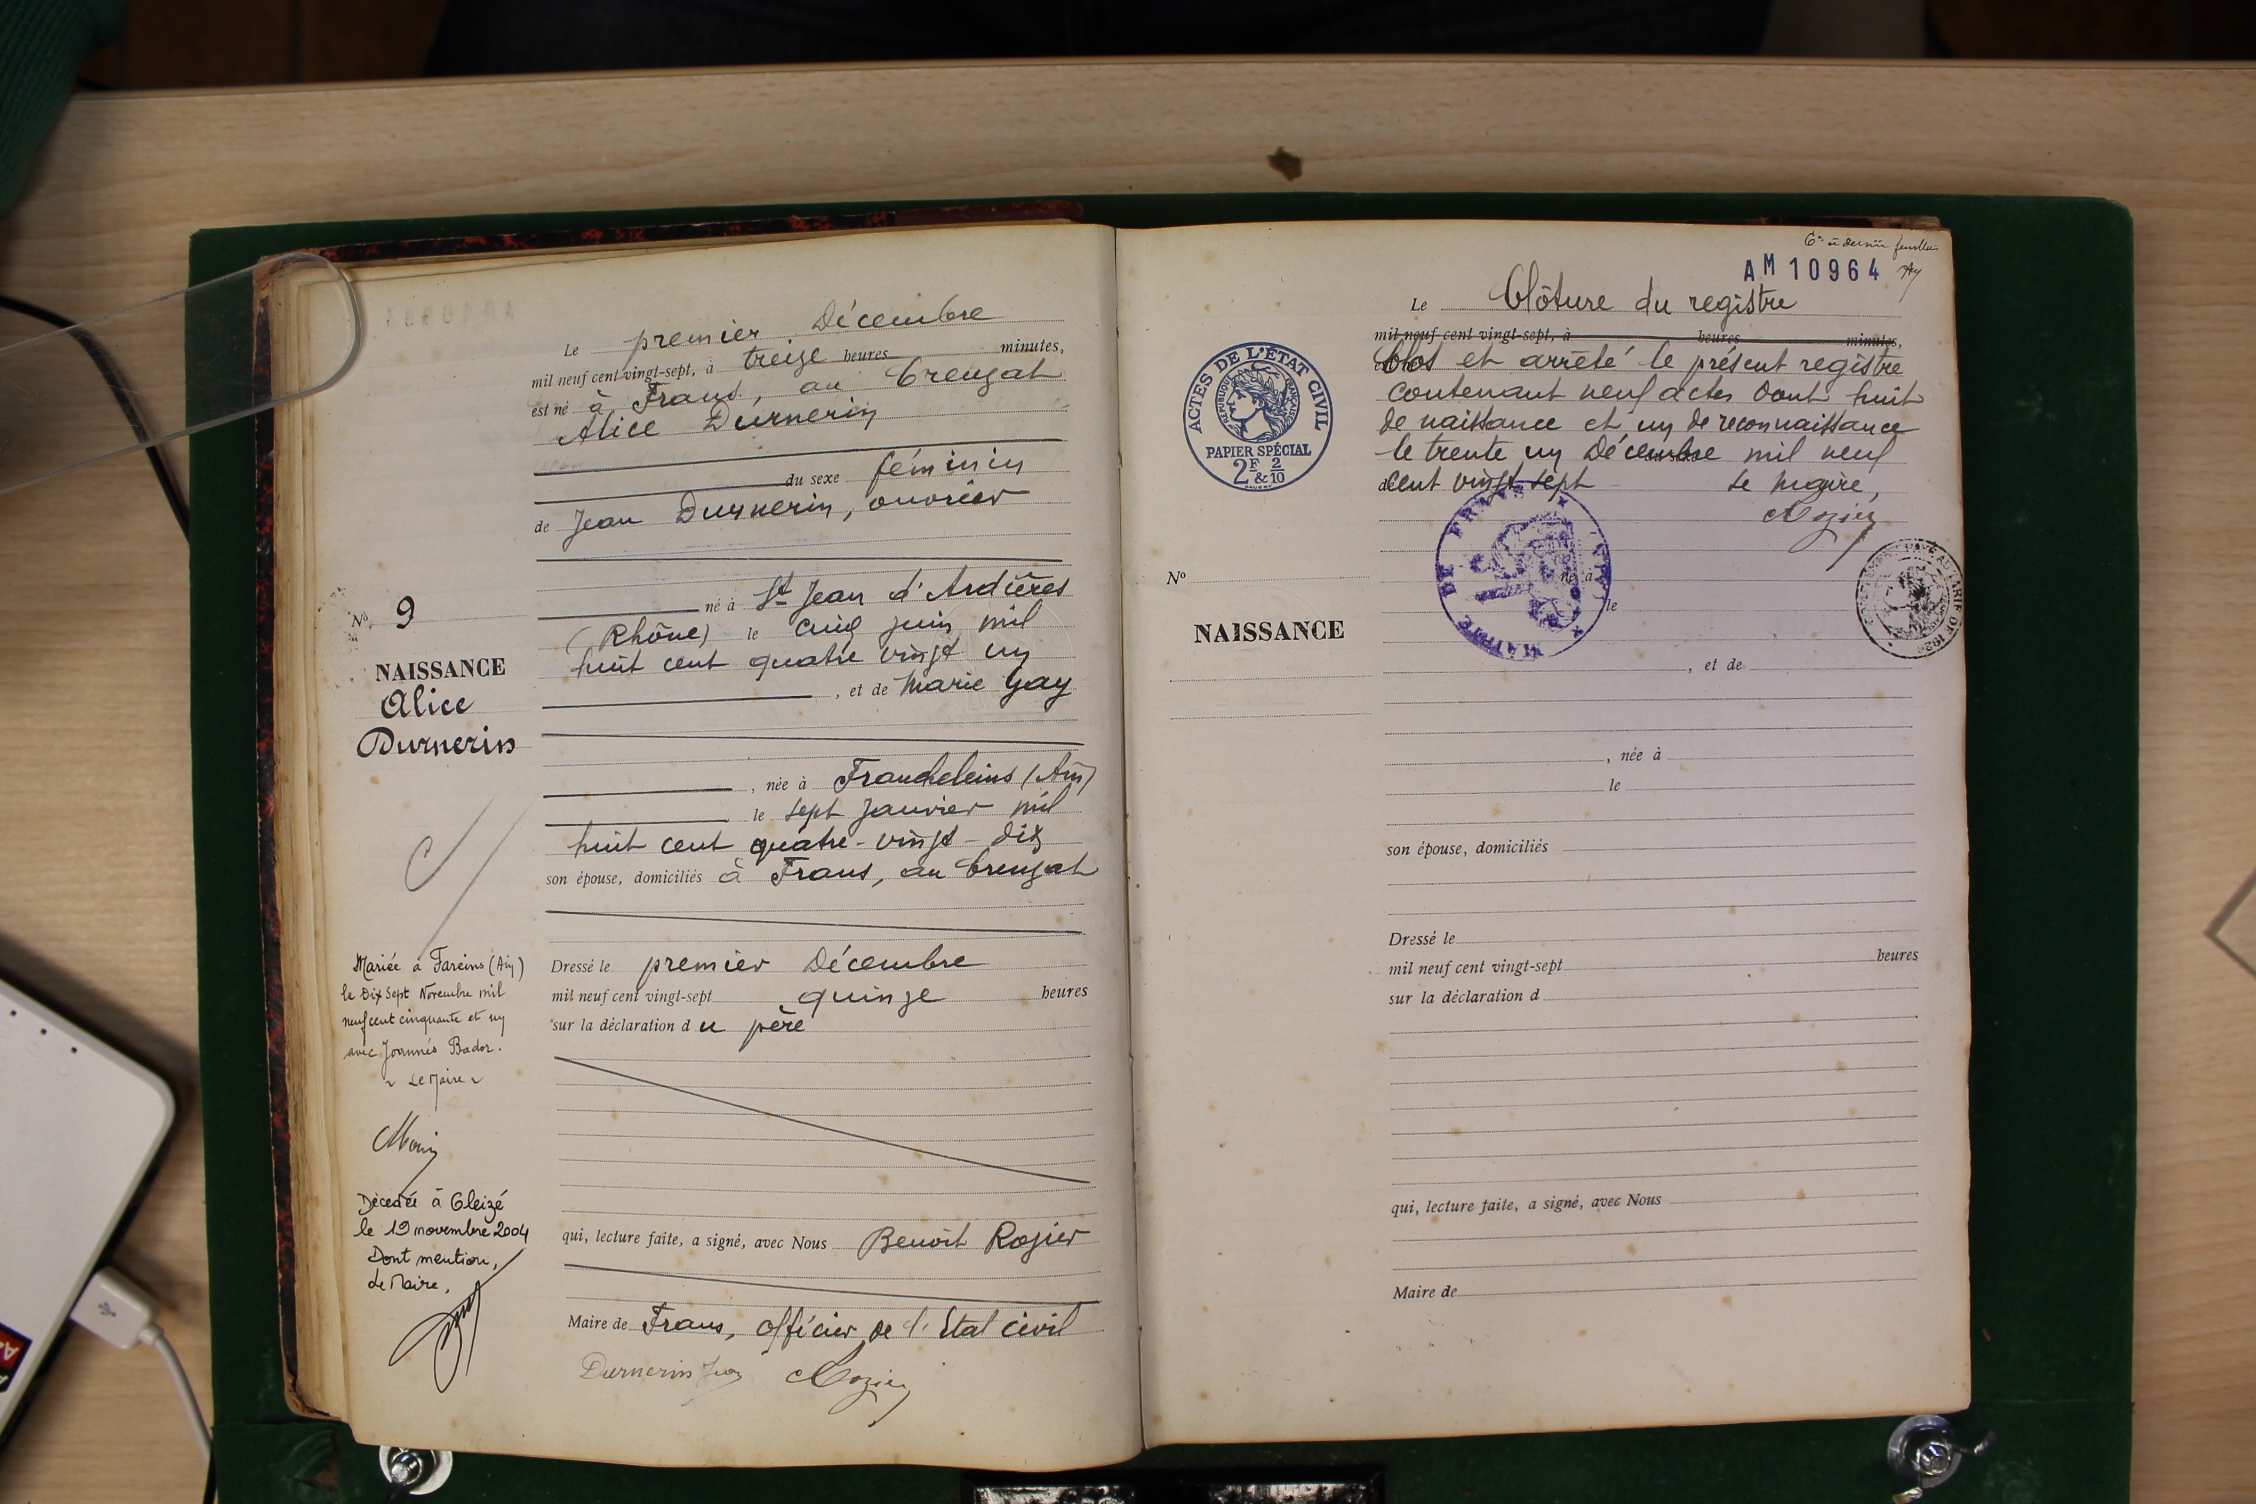 Le premier Décembre
mil neuf cent vingt-sept, à treize heures minutes,
est né à Frans, au Creuzat
Alice Durnerin
du sexe féminin
de Jean Durnerin, ouvrier
né à St Jean d'Ardières
(Rhône) le cinq juin mil
huit cent quatre vingt un
, et de Marie Gay
, née à Francheleins (Ain)
le sept Janvier mil
huit cent quatre-vingt-dix
son épouse, domiciliés à Frans, au Creuzat
Dressé le premier Décembre
mil neuf cent vingt-sept quinze heures
sur la déclaration du père
qui, lecture faite, a signé, avec Nous Benoit Rozier
Maire de Frans, officier de l'Etat civil
Durnerin Jean Rozier
No 9
NAISSANCE
Alice
Durnerin
Mariée à Fareins (Ain)
le Dix Sept Novembre mil
neuf cent cinquante et un
avec Joannès Bador.
Le Maire
Décédée à Gleizé
le 19 novembre 2004
Dont mention,
Le Maire,
AM 10964
Le Clôture du registre
mil neuf cent vingt-sept, à heures minutes,
Clos et arrêté le présent registre
contenant neuf actes dont huit
de naissance et un de reconnaissance
le trente un Décembre mil neuf
cent vingt sept Le Maire,
Rozier
ACTES DE L'ÉTAT CIVIL
RÉPUBLIQUE FRANÇAISE
PAPIER SPÉCIAL
2F & 2/10
MAIRIE DE FRANS (AIN)
No
NAISSANCE
né à
le
, et de
, née à
le
son épouse, domiciliés
Dressé le
mil neuf cent vingt-sept heures
sur la déclaration d
qui, lecture faite, a signé, avec Nous
Maire de